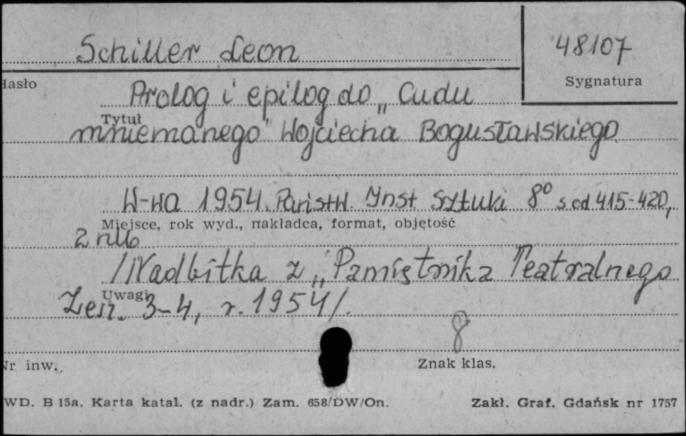 Schiller Leon
48107
Hasło
Sygnatura
Prolog i epilog do „Cudu
Tytuł
mniemanego" Wojciecha Bogusławskiego
W-wa 1954. Państw. Inst Sztuki 8° s. od 415-420,
Miejsce, rok wyd., nakładca, format, objętość
2 nlb
/Nadbitka z „Pamiętnika Teatralnego
Uwagi
Zesz. 3-4, r. 1954/.
8
Nr inw.
Znak klas.
WD. B 15a. Karta katal. (z nadr.) Zam. 658/DW/On.
Zakł. Graf. Gdańsk nr 1757